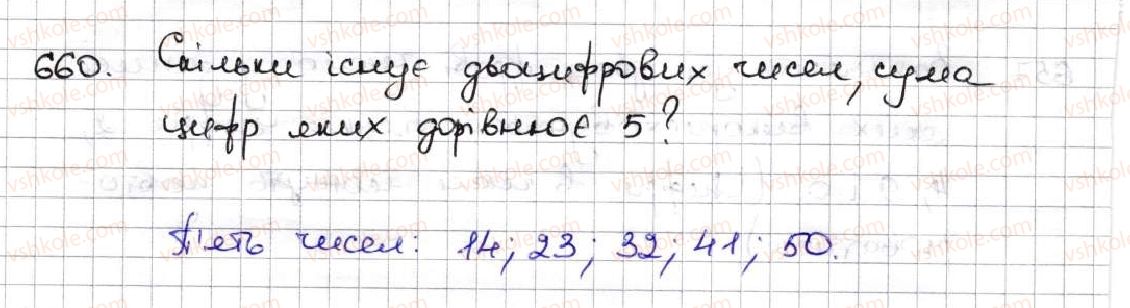 660. Скільки існує двоцифрових чисел, сума
цифр яких дорівнює 5?
П'ять чисел: 14; 23; 32; 41; 50.